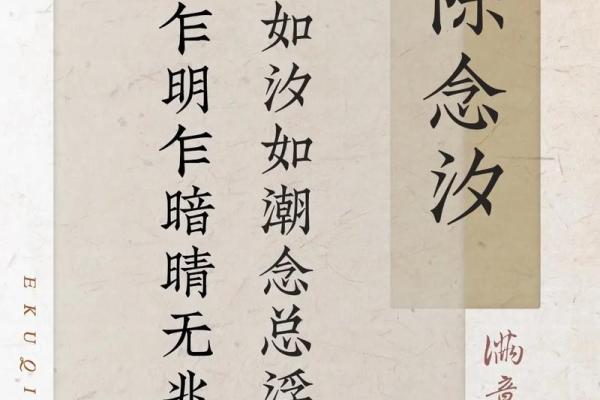 念汐
如汐如潮念总浮
乍明乍暗晴无兆
满意
EKUQI